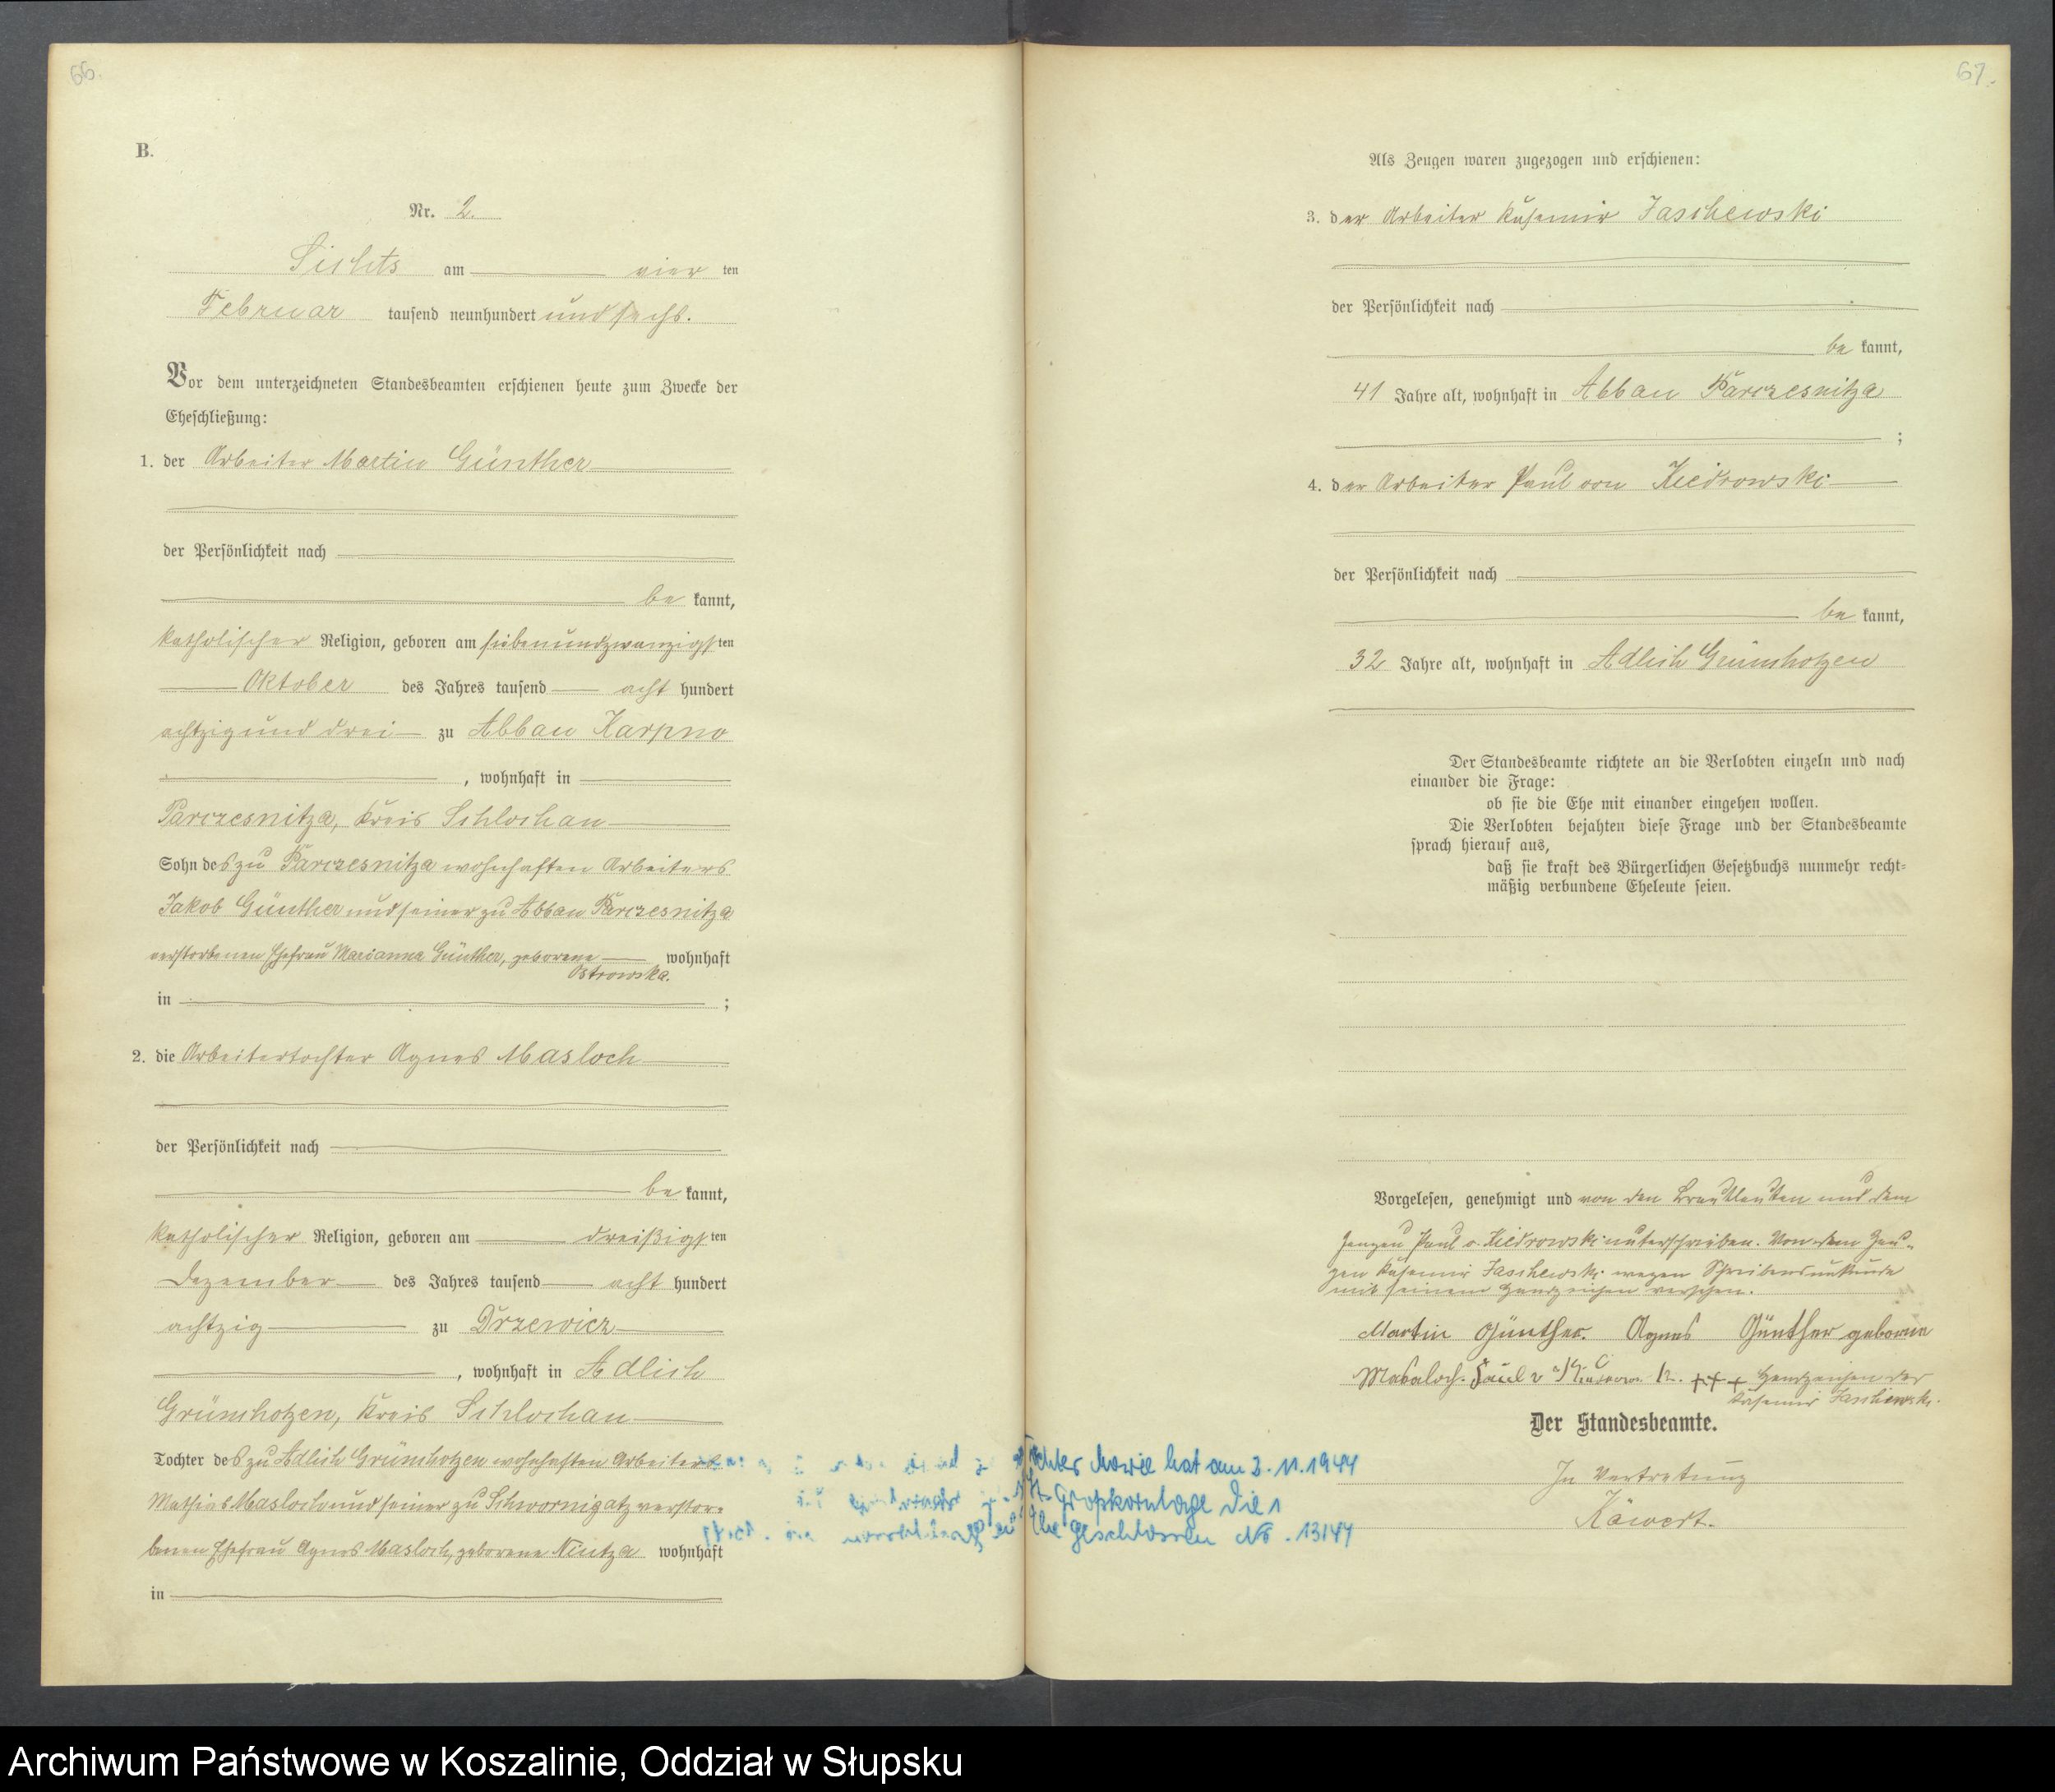 66.
B.
Nr. 2.
Lichts am vier ten
Februar tausend neunhundert und sechs.
Vor dem unterzeichneten Standesbeamten erschienen heute zum Zwecke der
Eheschließung:
1. der Arbeiter Martin Günther
der Persönlichkeit nach
be kannt,
katholischer Religion, geboren am siebenundzwanzigsten
Oktober des Jahres tausend acht hundert
achtzig und drei zu Abbau Karpno
, wohnhaft in
Parczesnitza, Kreis Schlochau
Sohn des zu Parczesnitza wohnhaften Arbeiters
Jakob Günther und seiner zu Abbau Parczesnitza
verstorbenen Ehefrau Marianna Günther, geborene wohnhaft
Ostrowska.
in ;
2. die Arbeitertochter Agnes Masloch
der Persönlichkeit nach
be kannt,
katholischer Religion, geboren am dreißigsten
Dezember des Jahres tausend acht hundert
achtzig zu Drzewicz
, wohnhaft in Adlich
Grünchotzen, Kreis Schlochau
Tochter des zu Adlich Grünchotzen wohnhaften Arbeiters
Mathias Masloch und seiner zu Schwornigatz verstor-
benen Ehefrau Agnes Masloch, geborene Nintza wohnhaft
in
67.
Als Zeugen waren zugezogen und erschienen:
3. der Arbeiter Kasemir Jaschewski
der Persönlichkeit nach
be kannt,
41 Jahre alt, wohnhaft in Abbau Parczesnitza
;
4. der Arbeiter Paul von Kiedrowski
der Persönlichkeit nach
be kannt,
32 Jahre alt, wohnhaft in Adlich Grünchotzen
Der Standesbeamte richtete an die Verlobten einzeln und nach
einander die Frage:
ob sie die Ehe mit einander eingehen wollen.
Die Verlobten bejahten diese Frage und der Standesbeamte
sprach hierauf aus,
daß sie kraft des Bürgerlichen Gesetzbuchs nunmehr recht-
mäßig verbundene Eheleute seien.
Vorgelesen, genehmigt und von den Brautleuten und dem
Zeugen Paul v. Kiedrowski unterschrieben. Von dem Zeu-
gen Kasemir Jaschewski wegen Schreibensunkunde
mit seinem Handzeichen versehen.
Martin Günther. Agnes Günther geborene
Masaloch. Paul v Kiedrowski. +++ Handzeichen des
Kasemir Jaschewski.
Der Standesbeamte.
In Vertretung
Käwert.
Tochter Marie hat am 2.11.1944
Großkarnlage die 1
Ehe geschlossen No. 13/44
Archiwum Państwowe w Koszalinie, Oddział w Słupsku